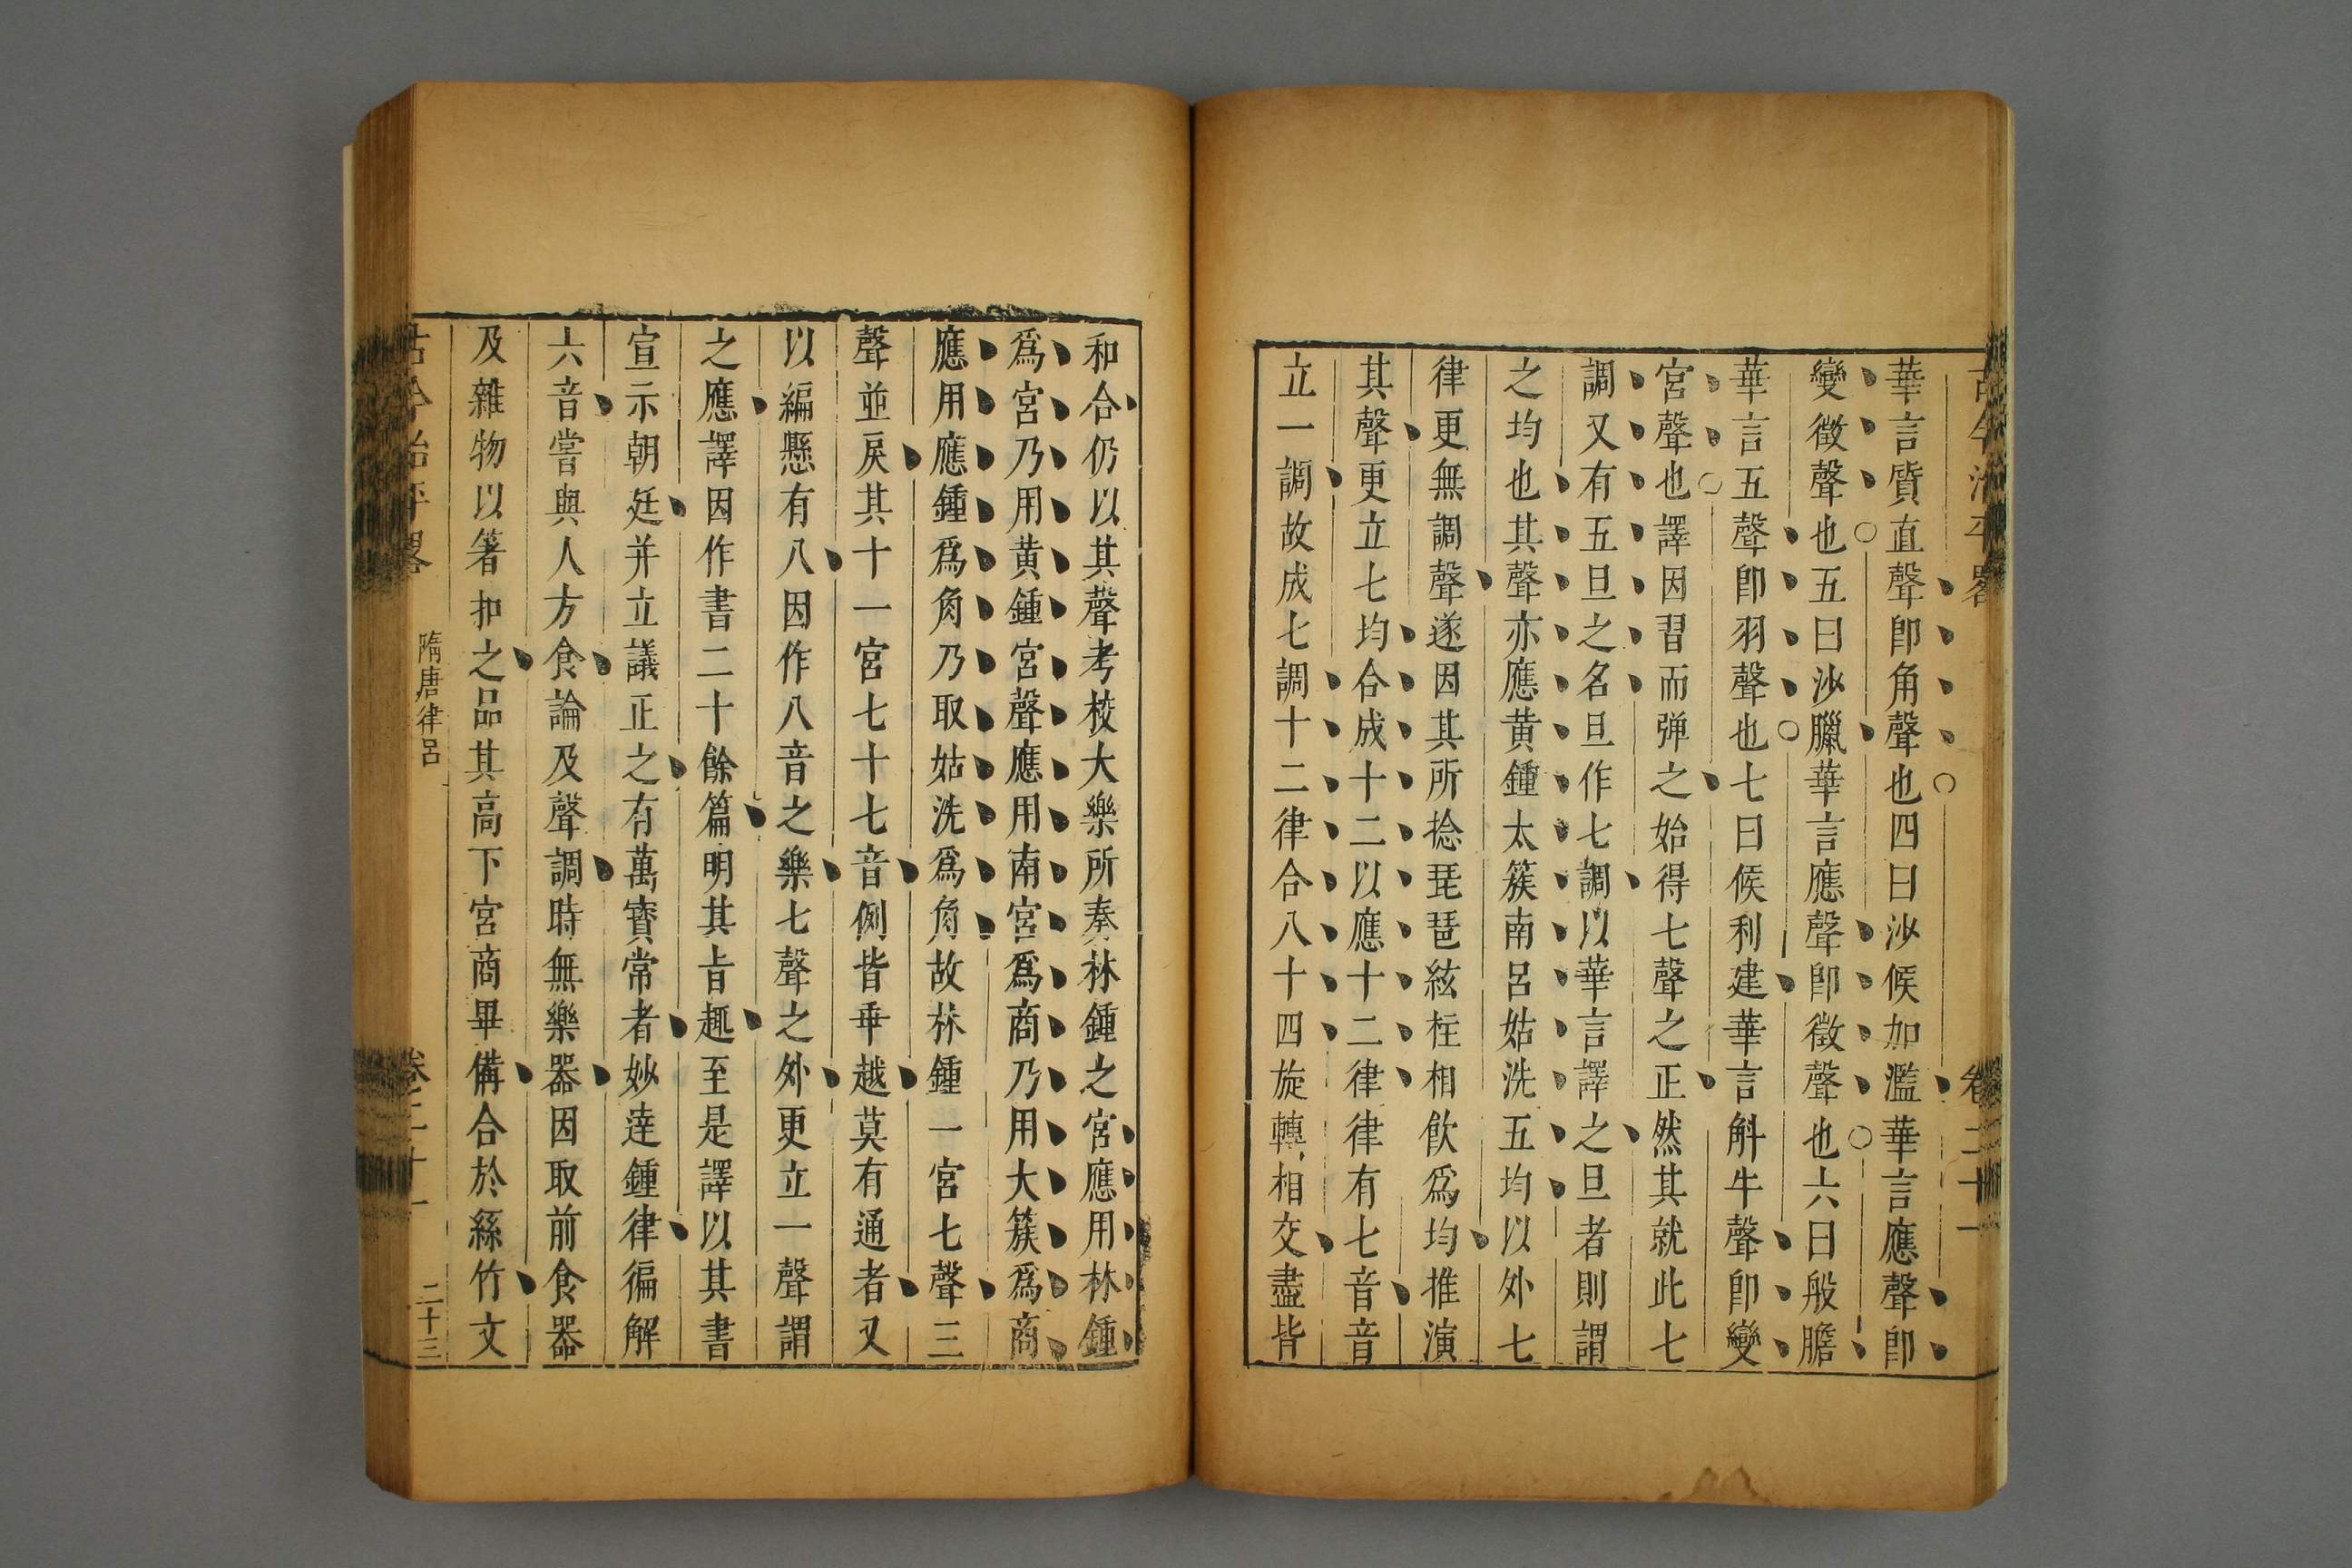 古今治平畧
卷二十一
華言質直聲卽角聲也四曰沙候加濫華言應聲卽
變徵聲也五曰沙臘華言應聲卽徵聲也六曰般膽
華言五聲卽羽聲也七曰候利建華言斛牛聲卽變
宮聲也譯因習而弹之始得七聲之正然其就此七
調又有五旦之名旦作七調以華言譯之旦者則謂
之均也其聲亦應黄鍾太簇南呂姑洗五均以外七
律更無調聲遂因其所捻琵琶絃柱相飮爲均推演
其聲更立七均合成十二以應十二律律有七音音
立一調故成七調十二律合八十四旋轉相交盡皆
和合仍以其聲考校大樂所奏林鍾之宮應用林鍾
爲宮乃用黄鍾宮聲應用南宮爲商乃用大簇爲商
應用應鍾爲角乃取姑洗爲角故林鍾一宮七聲三
聲並戾其十一宮七十七音例皆乖越莫有通者又
以編懸有八因作八音之樂七聲之外更立一聲謂
之應譯因作書二十餘篇明其旨趣至是譯以其書
宣示朝廷并立議正之有萬寶常者妙達鍾律徧解
六音嘗與人方食論及聲調時無樂器因取前食器
及雜物以箸扣之品其高下宮商畢備合於絲竹文
古今治平畧
隋唐律呂
卷二十一
二十三